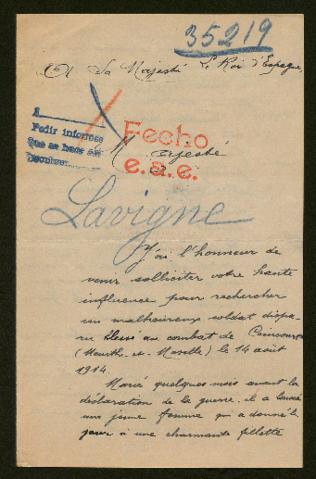 35219
A Sa Majesté Le Roi d'Espagne,
A
Pedir informes
que se hace en
Fecho
e.a.e.
Majesté
Lavigne
J'ai l'honneur de
venir solliciter votre haute
influence pour rechercher
un malheureux soldat dispa-
ru blessé au combat de Coincourt
(Meurth.-et-Moselle) le 14 août
1914.
Marié quelques mois avant la
déclaration de la guerre, il a laissé
une jeune femme qui a donné le
jour à une charmante fillette